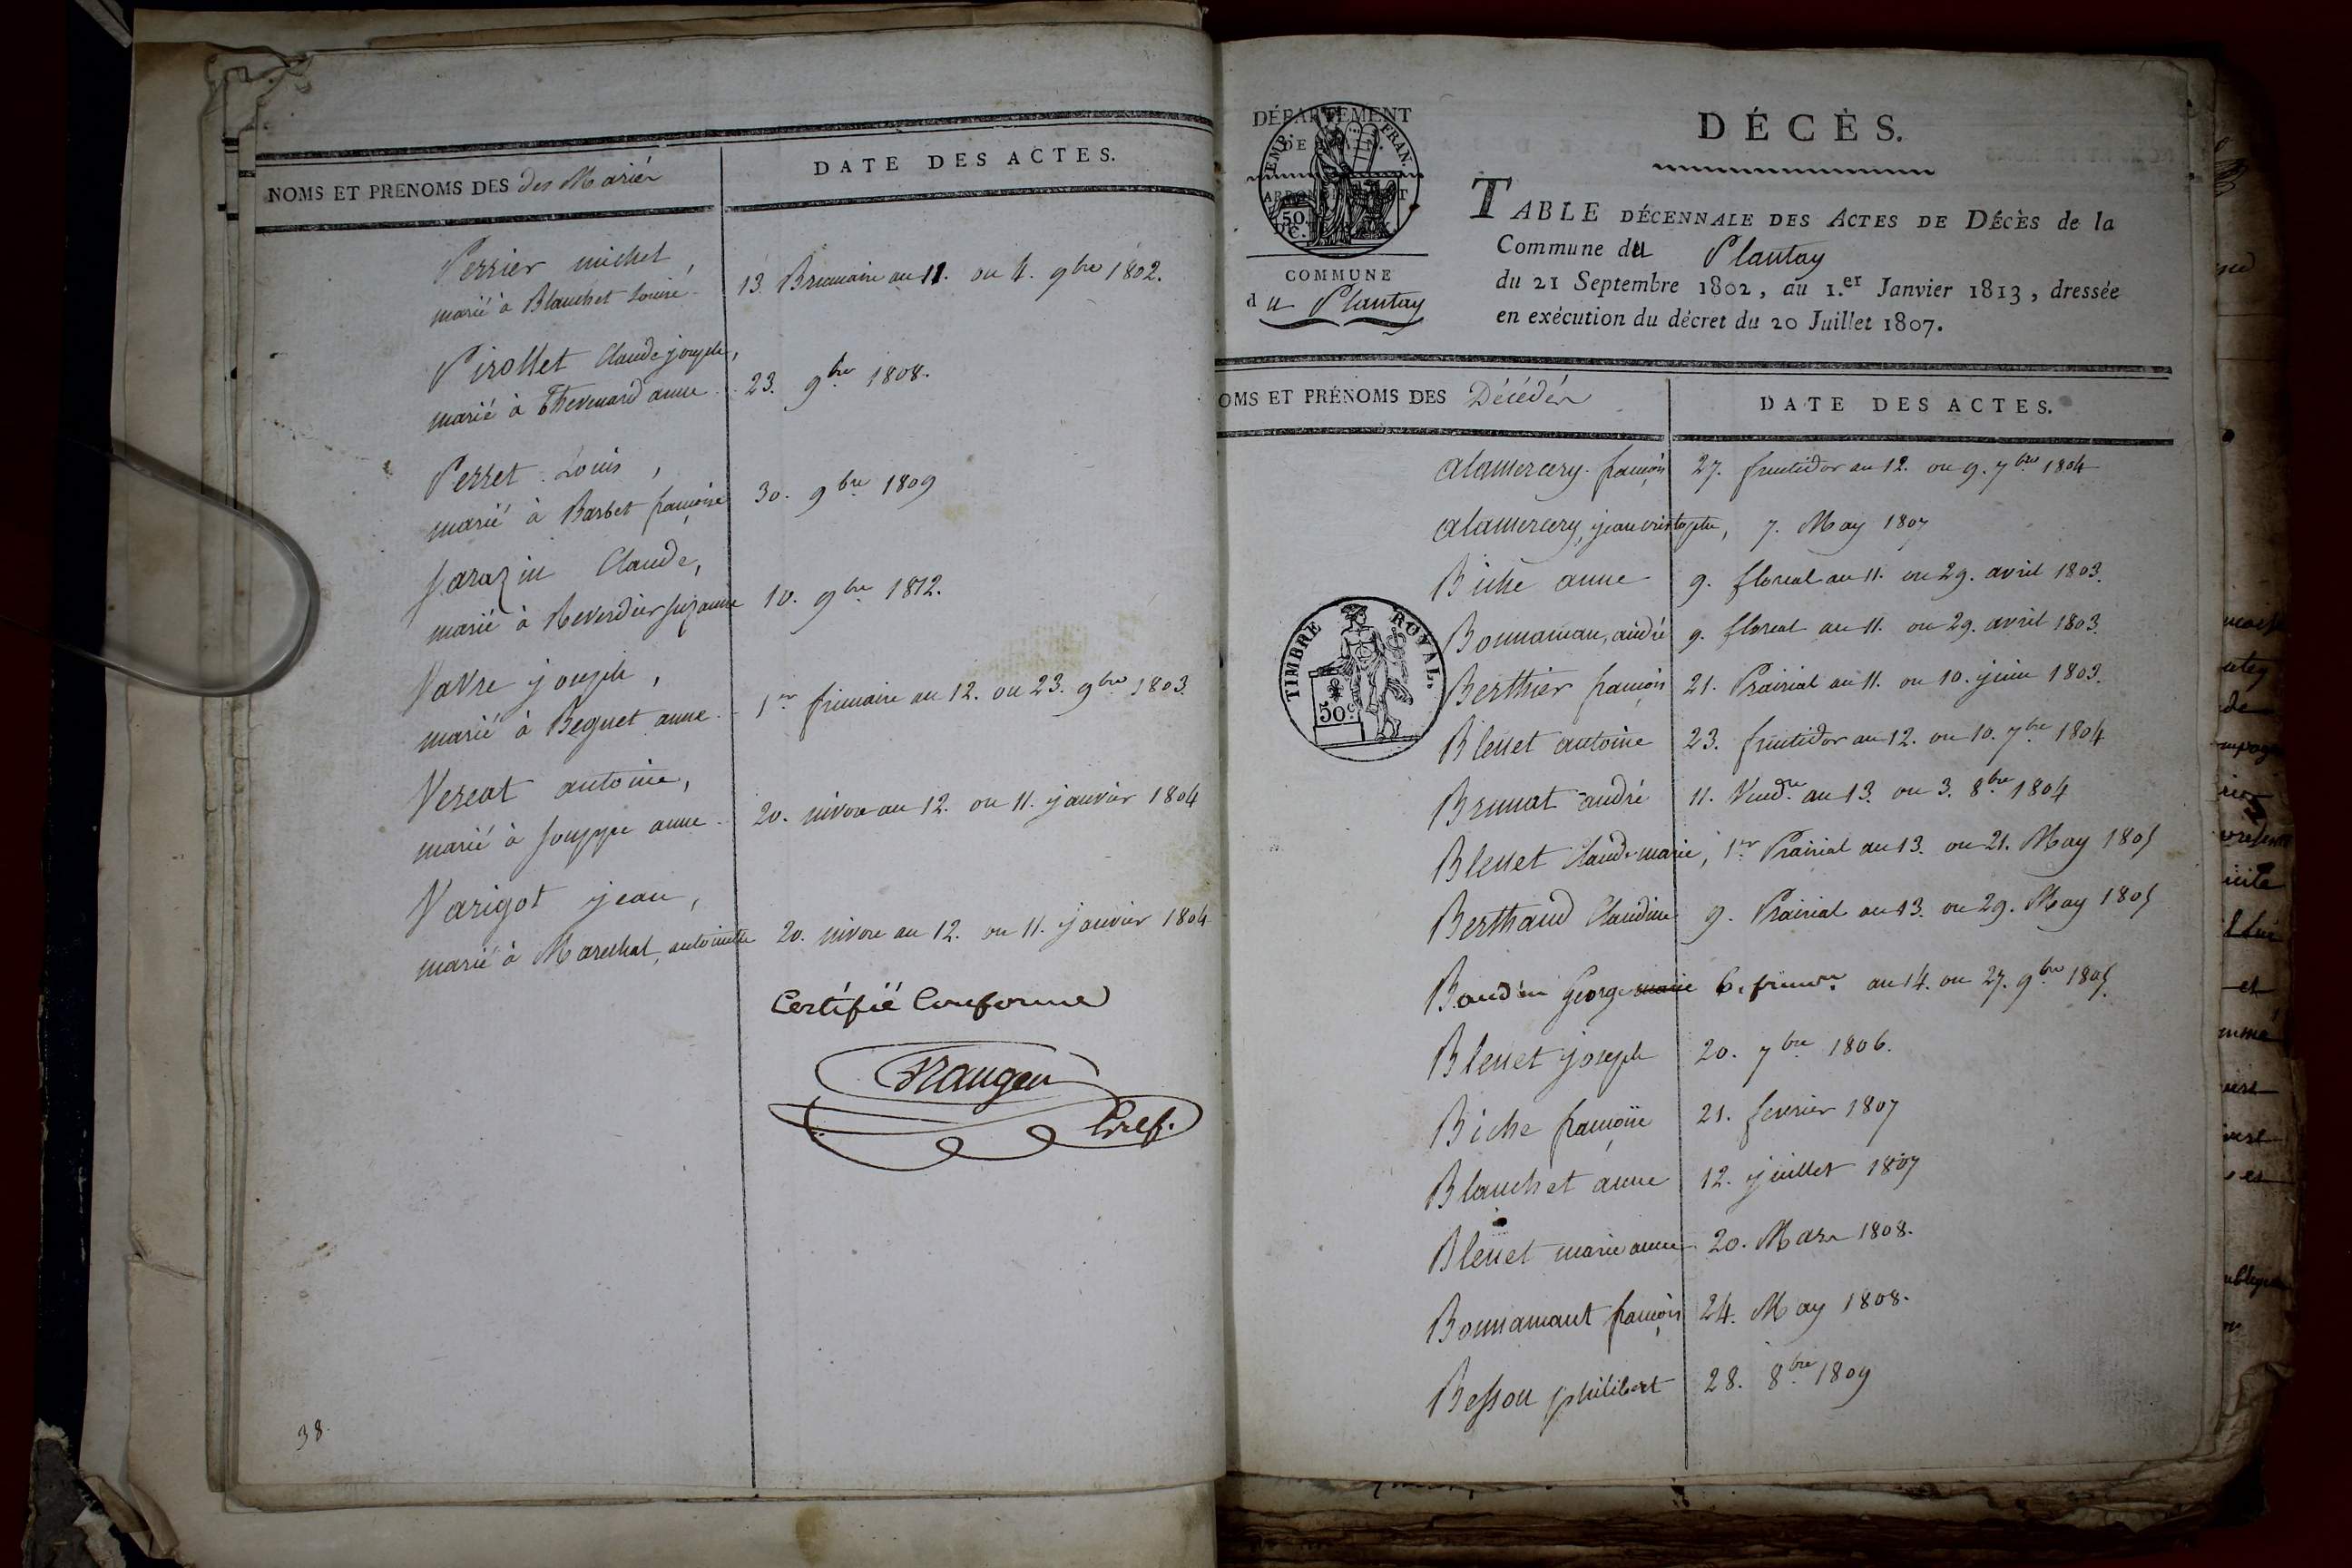 NOMS ET PRENOMS DES des Mariés
DATE DES ACTES.
Perrier michel,
marié à Blanchet Louise. 13. Brumaire an 11. ou 4. 9bre 1802.
Pirollet Claude joseph,
marié à Thevenard anne. 23. 9bre 1808.
Perret Louis,
marié à Barbet françoise 30. 9bre 1809
Sarazin Claude,
marié à Reverdier suzanne 10. 9bre 1812.
Vavre joseph,
marié à Beguet anne. 1er frimaire an 12. ou 23. 9bre 1803.
Vercat antoine,
marié à Souppe anne. 20. nivose an 12. ou 11. janvier 1804
Varigot jean,
marié à Marechal, antoinette 20. nivose an 12. ou 11. janvier 1804
Certifié Conforme
Gref.
38.
DÉPARTEMENT
DE L'AIN.
TIMBRE ROYAL.
50 c
COMMUNE
du Plantay
DÉCÈS.
TABLE DÉCENNALE DES ACTES DE DÉCÈS de la
Commune du Plantay
du 21 Septembre 1802, au 1.er Janvier 1813, dressée
en exécution du décret du 20 Juillet 1807.
OMS ET PRÉNOMS DES Décédés
DATE DES ACTES.
alamercery. françois 27. fructidor an 12. ou 9. 7bre 1804
alamercery, jean cristophe, 7. May 1807
Biche anne 9. floreal an 11. ou 29. avril 1803.
Bonnaman, andré 9. floreal an 11. ou 29. avril 1803.
Berthier françois 21. Prairial an 11. ou 10. juin 1803.
Bleuet antoine 23. fructidor an 12. ou 10. 7bre 1804
Brunat andré 11. Vendre an 13. ou 3. 8bre 1804
Bleuet Claude marie, 1er Prairial an 13. ou 21. May 1805
Berthaud Claudine 9. Prairial an 13. ou 29. May 1805
Baudin George marie 6. frimre an 14. ou 27. 9bre 1805.
Bleuet joseph 20. 7bre 1806.
Biche françoise 21. fevrier 1807
Blanchet anne 12. juillet 1807
Bleuet marie anne 20. Mars 1808.
Bonnamant françois 24. May 1808.
Besson philibert 28. 8bre 1809